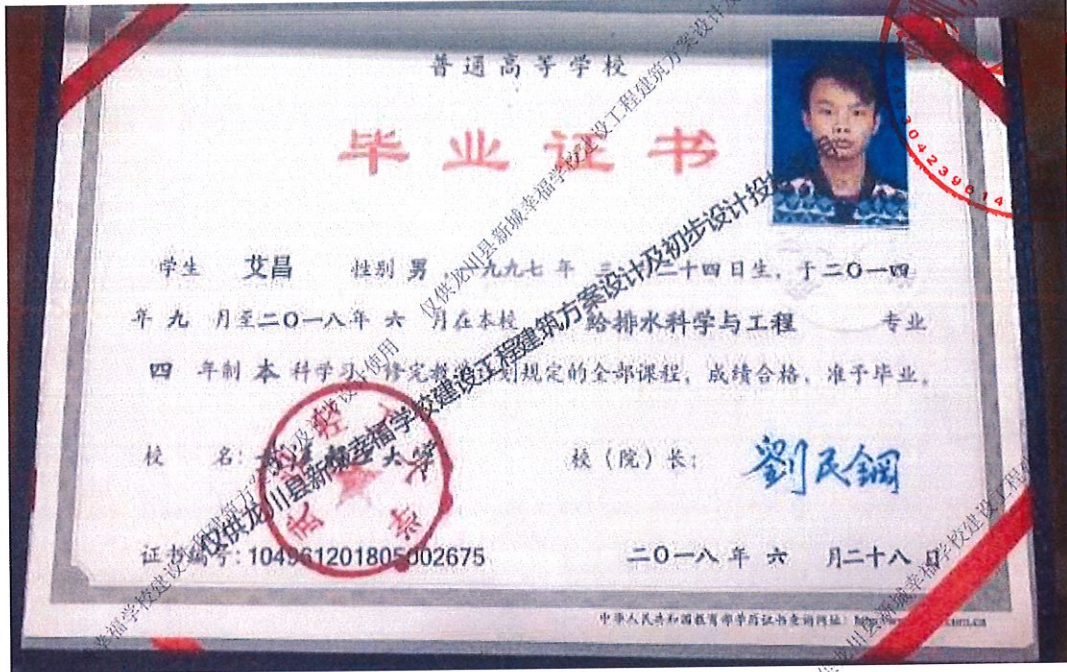 普通高等学校
毕业证书
学生 艾昌 性别 男 一九九七年 三 二十四日生,于二〇一四
年 九 月至二〇一八年 六 月在本校 给排水科学与工程 专业
四 年制 本 科学习,修完教学计划规定的全部课程,成绩合格,准予毕业。
校 名: 大学
校(院)长: 劉民鋼
证书编号:104961201805002675
二〇一八年 六 月二十八日
中华人民共和国教育部学历证书查询网址:
仅供龙川县新城幸福学校建设工程建筑方案设计及初步设计投